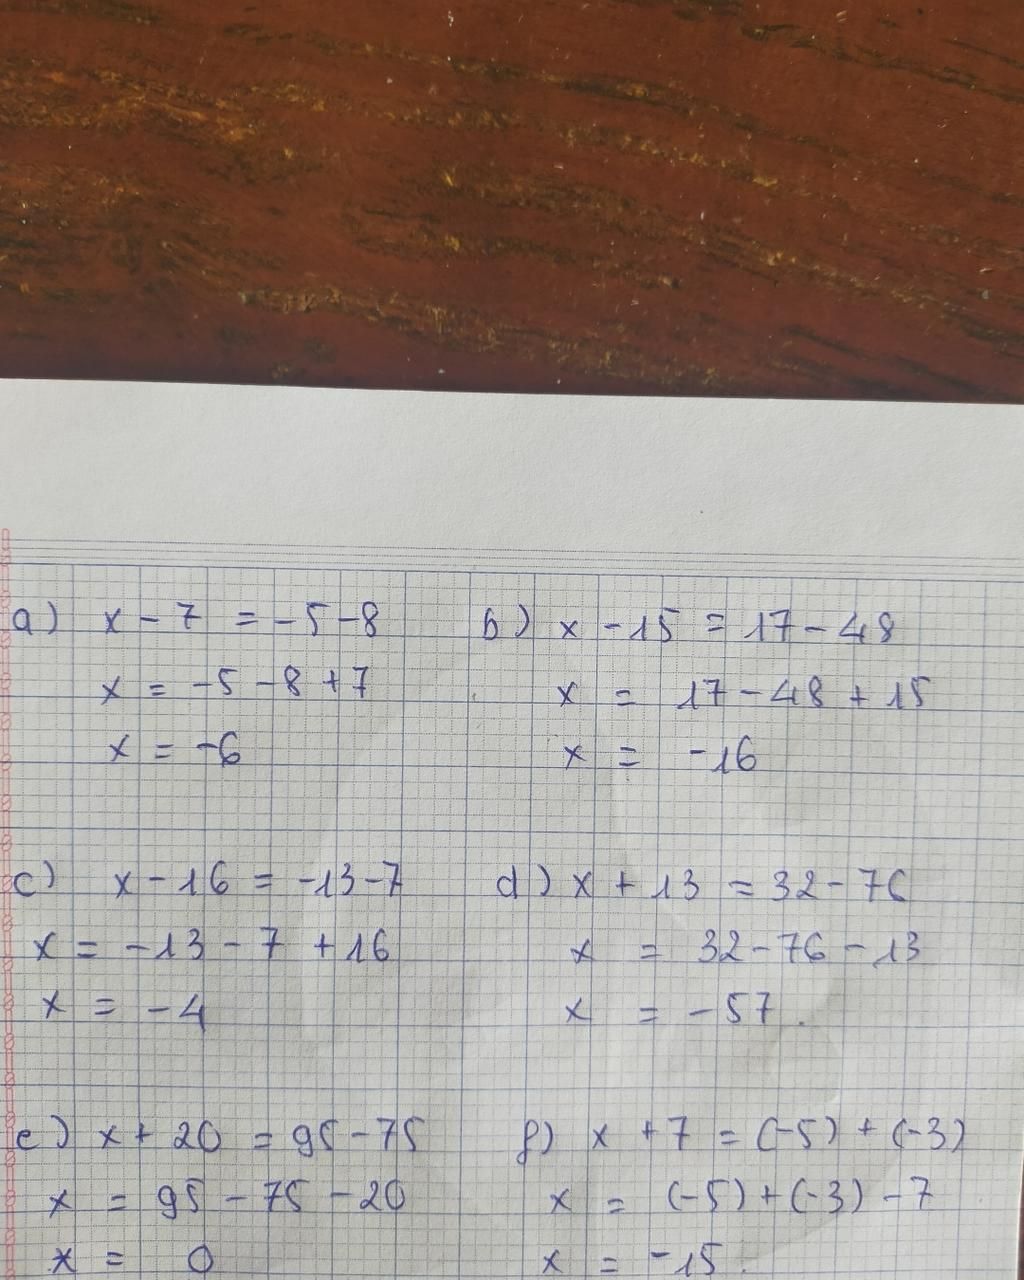 a) x - 7 = -5 -8
x = -5 -8 +7
x = -6
b) x -15 = 17 - 48
x = 17 - 48 + 15
x = -16
c) x - 16 = -13 -7
x = -13 - 7 +16
x = -4
d) x + 13 = 32 - 76
x = 32 - 76 - 13
x = -57.
e) x + 20 = 95 - 75
x = 95 - 75 - 20
x = 0
f) x + 7 = (-5) + (-3)
x = (-5) + (-3) - 7
x = -15.